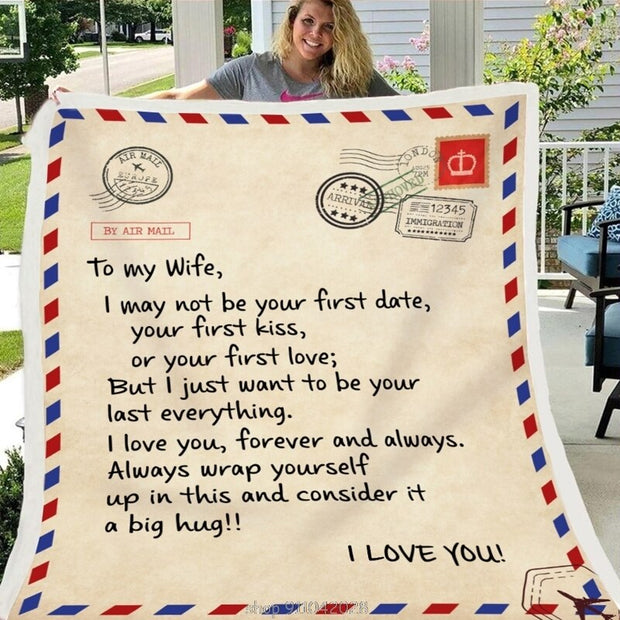 AIR MAIL
EUROPE
LONDON
ARRIVAL
12345
IMMIGRATION
BY AIR MAIL
To my Wife,
I may not be your first date,
your first kiss,
or your first love;
But I just want to be your
last everything.
I love you, forever and always.
Always wrap yourself
up in this and consider it
a big hug!!
I LOVE YOU!
shop 911042028